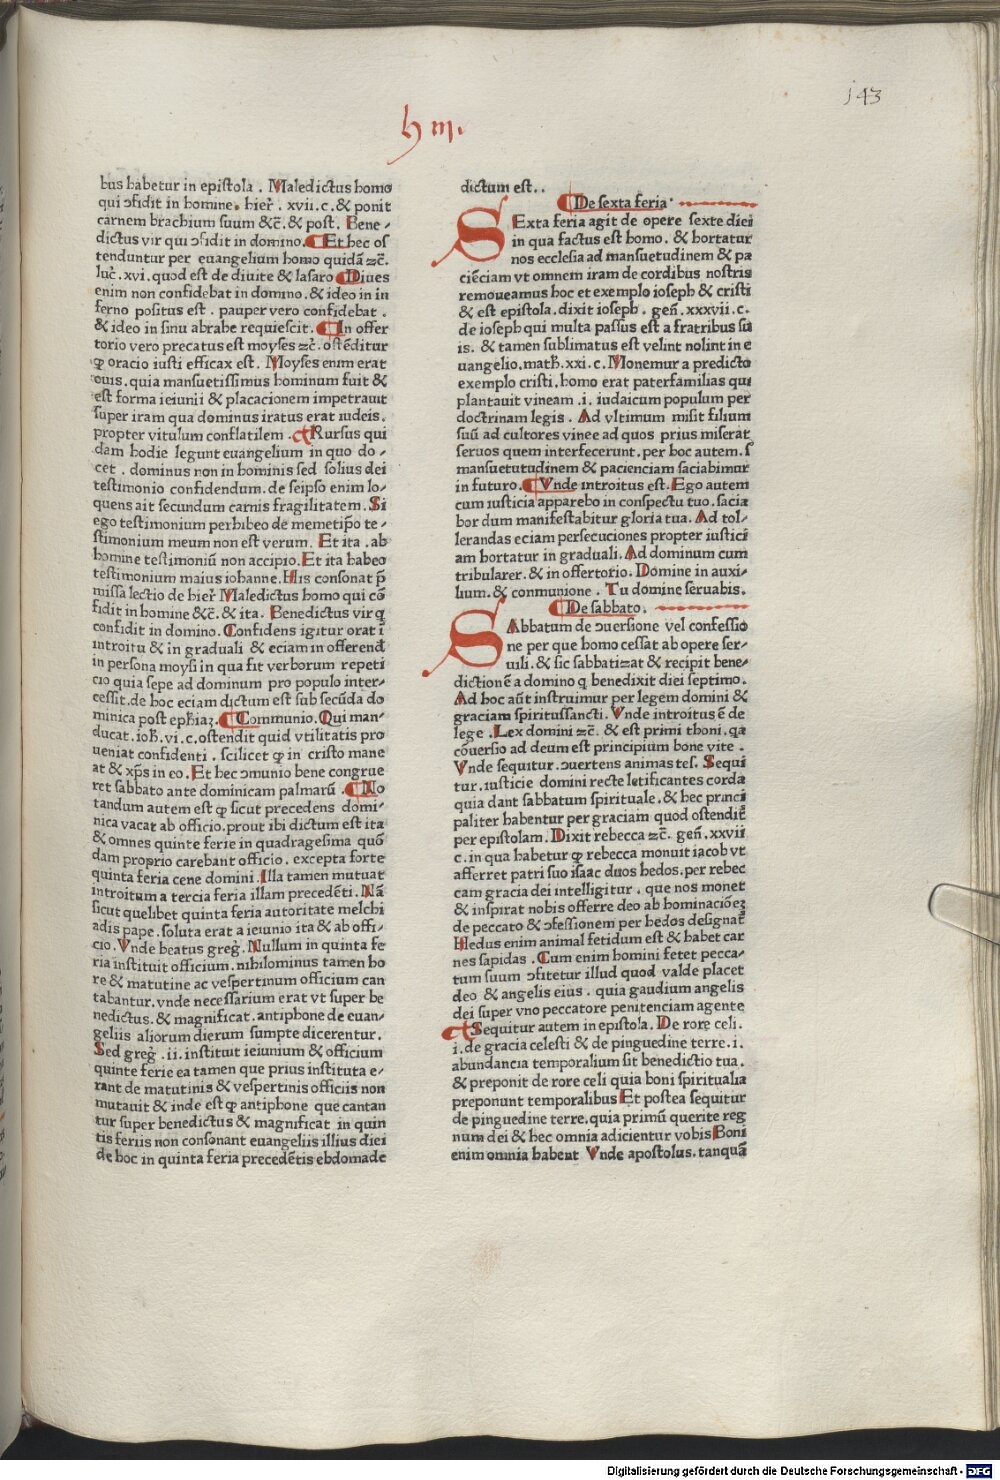 143
h m.
bus habetur in epistola . Maledictus homo
qui ɔfidit in homine. hier̃. xvii.c.& ponit
carnem brachium suum &c̃.& post. Bene-
dictus vir qui ɔfidit in domino. ¶ Et hec os
tenduntur per euangelium homo quidã ⁊c̃.
luc̃. xvi. quod est de diuite & lasaro ¶ Diues
enim non confidebat in domino.& ideo in in
ferno positus est . pauper vero confidebat .
& ideo in sinu abrahe requiescit. ¶ In offer
torio vero precatus est moyses ⁊c̃. ostẽditur
ꝙ oracio iusti efficax est . Moyses enim erat
ouis. quia mansuetissimus hominum fuit &
est forma ieiunii & placacionem impetrauit
super iram qua dominus iratus erat iudeis.
propter vitulum conflatilem . ¶ Rursus qui
dam hodie legunt euangelium in quo do-
cet . dominus non in hominis sed solius dei
testimonio confidendum. de seipso enim lo-
quens ait secundum carnis fragilitatem. Si
ego testimonium perhibeo de memetip̃o te-
stimonium meum non est verum. Et ita . ab
homine testimoniũ non accipio. Et ita habeo
testimonium maius iohanne. His consonat p̃
missa lectio de hier̃ Maledictus homo qui cõ
fidit in homine &c̃.& ita. Benedictus vir q
confidit in domino. Confidens igitur orat ĩ
introitu & in graduali & eciam in offerend
in persona moysi in qua fit verborum repeti
cio quia sepe ad dominum pro populo inter-
cessit.de hoc eciam dictum est sub secũda do
minica post eph̃iaꝫ. ¶ Communio. Qui man-
ducat. ioh̃. vi. c. ostendit quid vtilitatis pro
ueniat confidenti . scilicet ꝙ in cristo mane
at & xp̃s in eo. Et hec ɔmunio bene congrue
ret sabbato ante dominicam palmarũ . ¶ No
tandum autem est ꝙ sicut precedens domi-
nica vacat ab officio. prout ibi dictum est ita
& omnes quinte ferie in quadragesima quõ
dam proprio carebant officio . excepta forte
quinta feria cene domini. Illa tamen mutuat
introitum a tercia feria illam precedẽti. Nã
sicut quelibet quinta feria autoritate melchi
adis pape. soluta erat a ieiunio ita & ab offi-
cio. Vnde beatus greg̃. Nullum in quinta fe
ria instituit officium. nihilominus tamen ho
re & matutine ac vespertinum officium can
tabantur. vnde necessarium erat vt super be
nedictus. & magnificat. antiphone de euan-
geliis aliorum dierum sumpte dicerentur.
Sed greg̃ . ii. instituit ieiunium & officium
quinte ferie ea tamen que prius instituta e-
rant de matutinis & vespertinis officiis non
mutauit & inde est ꝙ antiphone que cantan
tur super benedictus & magnificat in quin
tis feriis non consonant euangeliis illius diei
de hoc in quinta feria precedẽtis ebdomade
dictum est. .
¶ De sexta feria
SExta feria agit de opere sexte diei
in qua factus est homo. & hortatur
nos ecclesia ad mansuetudinem & pa
ciẽciam vt omnem iram de cordibus nostris
remoueamus hoc et exemplo ioseph & cristi
& est epistola. dixit ioseph. geñ. xxxvii. c.
de ioseph qui multa passus est a fratribus su
is. & tamen sublimatus est velint nolint in e
uangelio. math̃. xxi. c. Monemur a predicto
exemplo cristi. homo erat paterfamilias qui
plantauit vineam .i. iudaicum populum per
doctrinam legis . Ad vltimum misit filium
suũ ad cultores vinee ad quos prius miserat
seruos quem interfecerunt. per hoc autem. s̃
mansuetutudinem & pacienciam saciabimur
in futuro. ¶ Vnde introitus est. Ego autem
cum iusticia apparebo in conspectu tuo. sacia
bor dum manifestabitur gloria tua. Ad tol-
lerandas eciam persecuciones propter iustici
am hortatur in graduali. Ad dominum cum
tribularer. & in offertorio. Domine in auxi-
lium. & conmunione . Tu domine seruabis.
¶ De sabbato.
SAbbatum de ɔuersione vel confessio
ne per que homo cessat ab opere ser-
uili. & sic sabbatizat & recipit bene-
dictionẽ a domino q benedixit diei septimo.
Ad hoc aũt instruimur per legem domini &
graciam spiritussancti. Vnde introitus ẽ de
lege . Lex domini ⁊c̃. & est primi thoni. qa
cõuersio ad deum est principium bone vite .
Vnde sequitur. ɔuertens animas tes. Sequi
tur. iusticie domini recte letificantes corda
quia dant sabbatum spirituale. & hec princi
paliter habentur per graciam quod ostendit̃
per epistolam. Dixit rebecca ⁊c̃. geñ. xxvii
c. in qua habetur ꝙ rebecca monuit iacob vt
afferret patri suo isaac duos hedos. per rebec
cam gracia dei intelligitur . que nos monet
& inspirat nobis offerre deo abhominaciõeꝫ
de peccato & ɔfessionem per hedos designat̃
Hedus enim animal fetidum est & habet car
nes sapidas . Cum enim homini fetet pecca-
tum suum ɔfitetur illud quod valde placet
deo & angelis eius . quia gaudium angelis
dei super vno peccatore penitenciam agente
¶ Sequitur autem in epistola. De rore celi.
i. de gracia celesti & de pinguedine terre. i.
abundancia temporalium sit benedictio tua.
& preponit de rore celi quia boni spiritualia
preponunt temporalibus Et postea sequitur
de pinguedine terre. quia primũ querite reg
num dei & hec omnia adicientur vobis Boni
enim omnia habent Vnde apostolus. tanquã
Digitalisierung gefördert durch die Deutsche Forschungsgemeinschaft - DFG